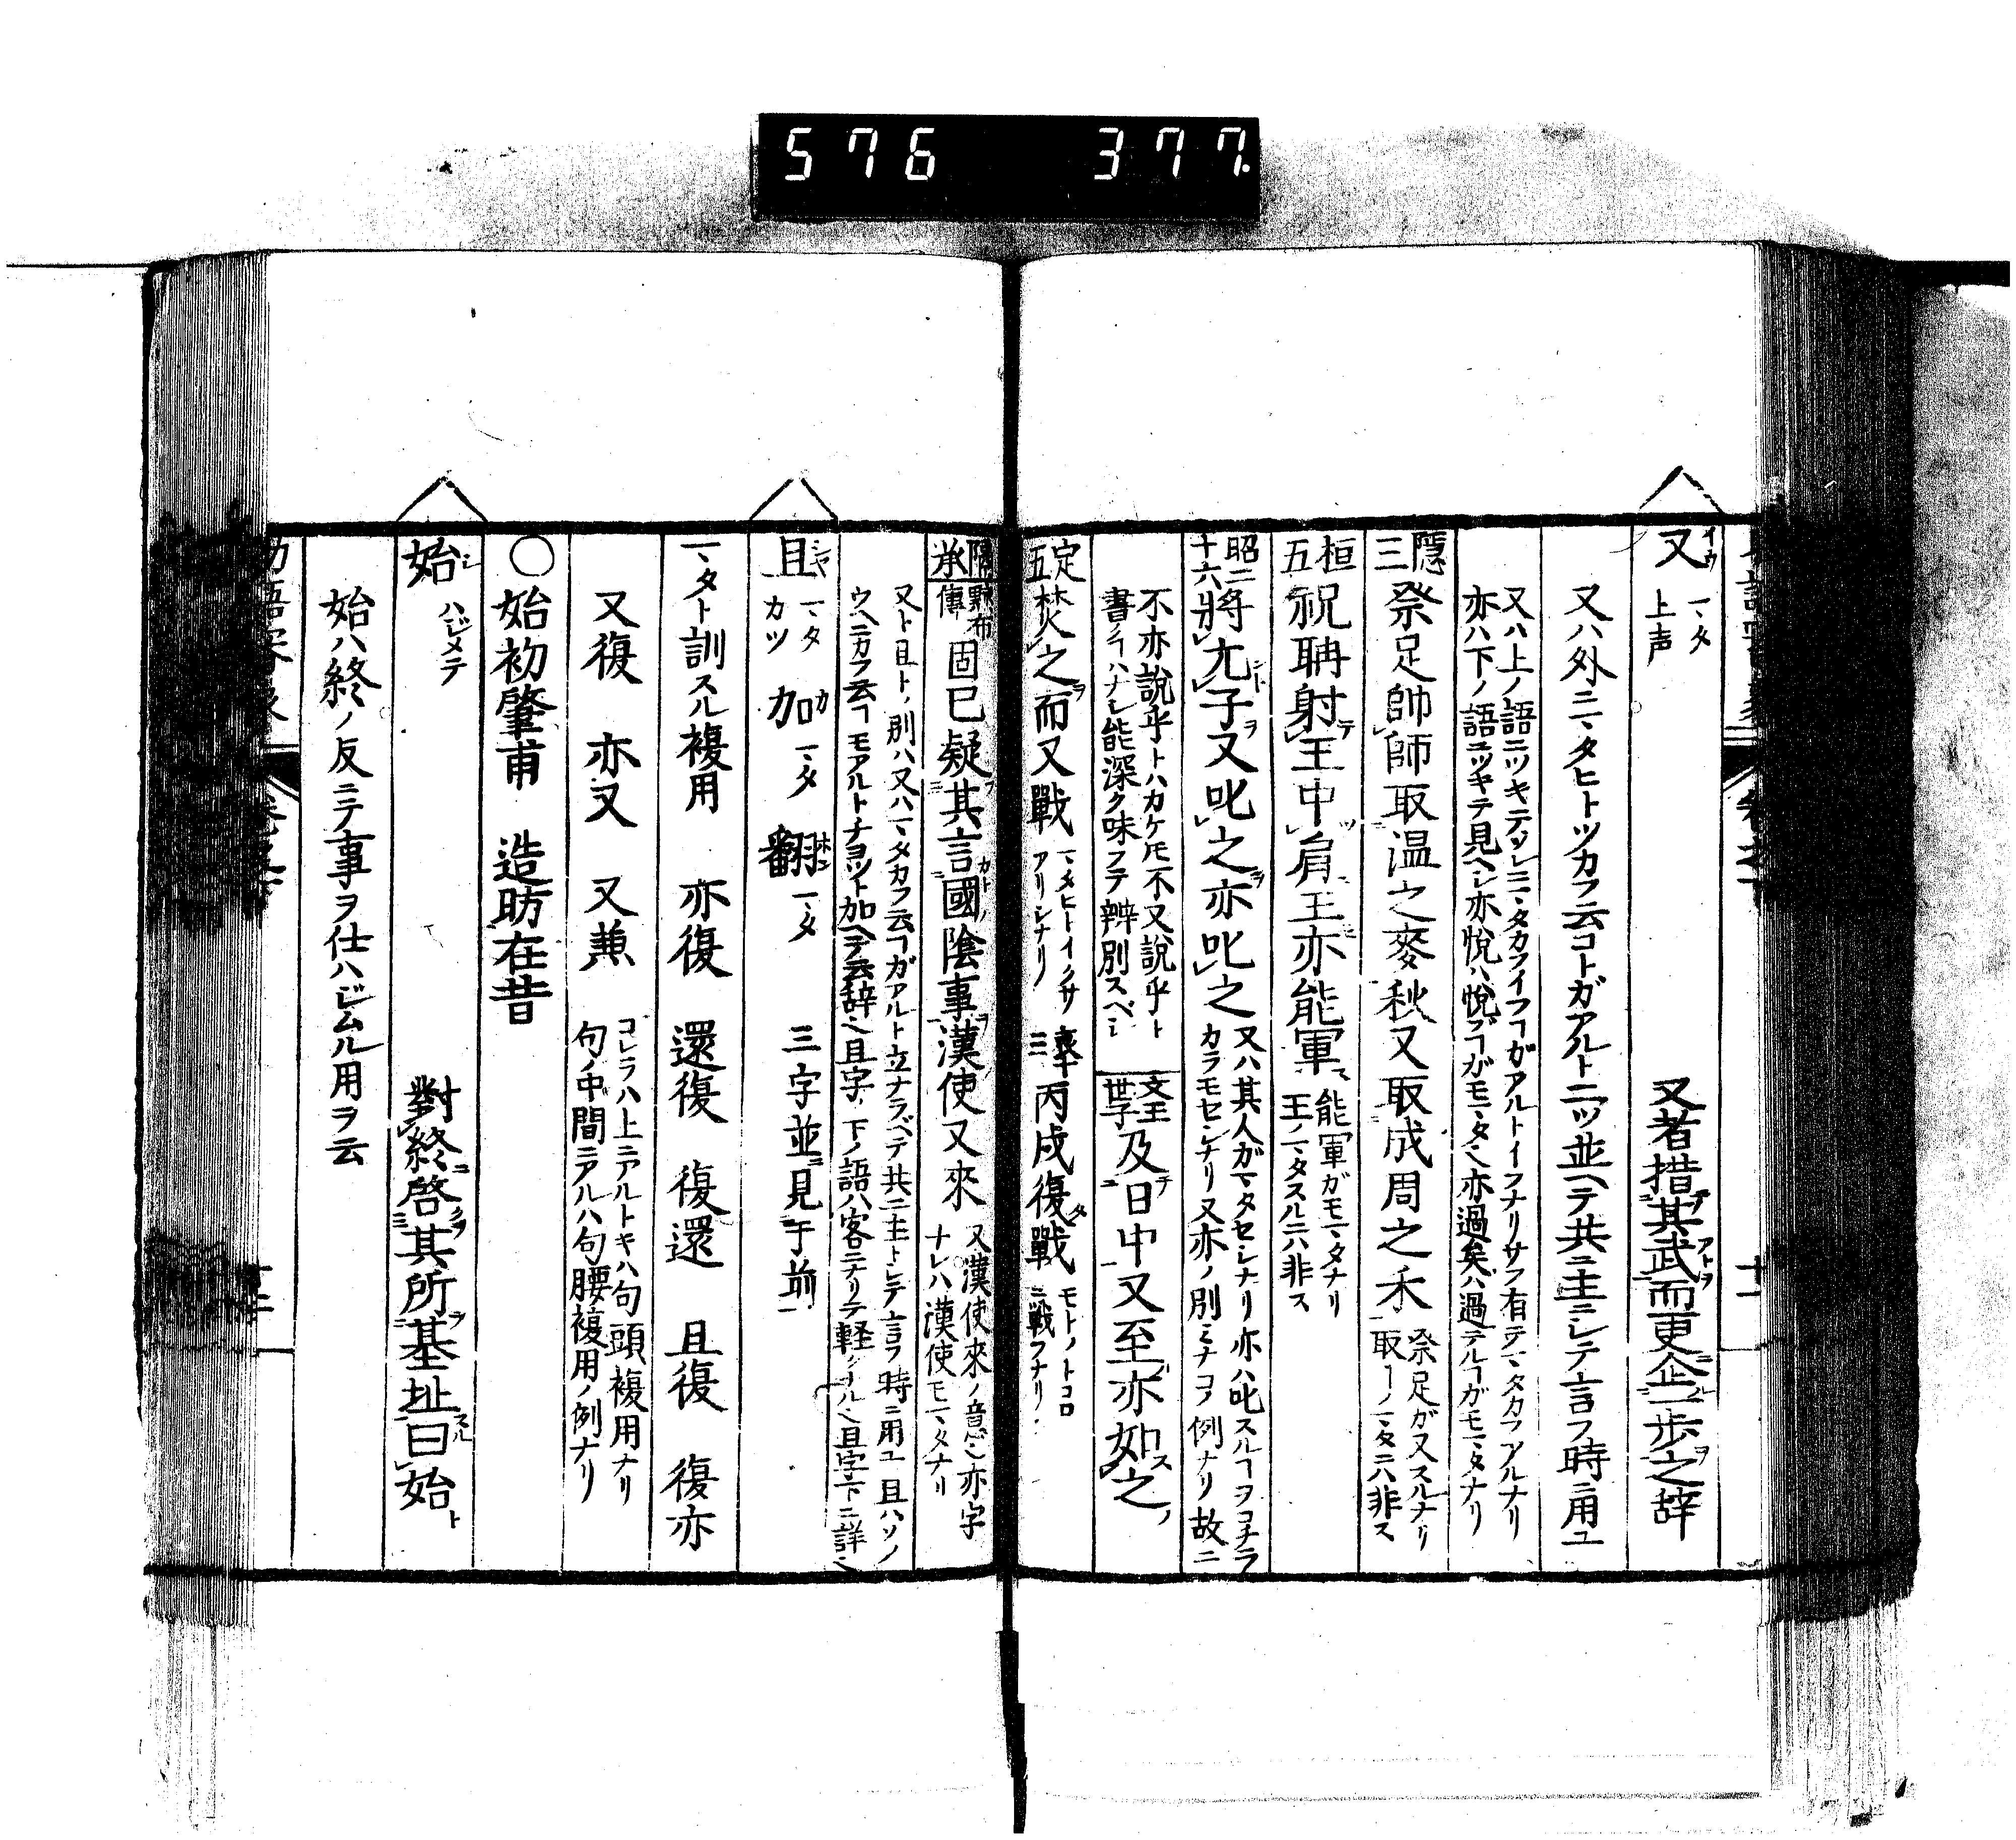 576 377
又 イウ 一、タ 上声 又者措其武而更企一歩之辞
又ハ外ニ一、タヒトツカフ云コトガアルト二ツ並ヘテ共ニ主ニシテ言フ時ニ用ユ
又ハ上ノ語ニツキテ
亦ハ下ノ語ニツキテ見ヘシ亦悦ハ悦ブヿガモ一、タ〻亦過矣ハ過テルヿガモ一、タナリ
隱三 祭足帥師取温之麥秋又取成周之禾 祭足ガ又スルナリ
取ーノ一、タニハ非ス
桓五 祝聃射王中肩王亦能軍 能軍ガモ一、タナリ
王ノ一、タスルニハ非ス
昭二十六 將亢子又叱之亦叱之 又ハ其人ガ一、タセシナリ亦ハ叱スルヿヲコチラ
カラモセシナリ又亦ノ別ミナコヲ例ナリ故ニ
不亦説乎トハカケ𪜈不又説乎ト
書クヿハナシ能深ク味フテ辨別スベシ
文王世子 及日中又至亦如之
定五 焚之而又戰 一、タヒトイクサ
アリシナリ
丙戌復戰 モトノトコロ
ニ戰フナリ
隋黥布傳 固已疑其言國陰事漢使又來 又漢使來ノ意〻亦字
ナレハ漢使モ一、タナリ
又ト且トノ別ハ又ハ一、タカフ云ヿガアルト立ナラベテ共ニ主トシテ言フ時ニ用ユ且ハソノ
ウヘニカフ云ヿモアルトチヨツト加ヘテ云辞〻且字ノ下ノ語ハ客ニナリテ軽クナル〻且字下ニ詳〻
且 シヤ 一、タ カツ 加 カ 一、タ 翻 ホン 一、タ 三字並見于前
一、タト訓スル複用 亦復 還復 復還 且復 復亦
又復 亦又 又兼 コレラハ上ニアルトキハ句頭複用ナリ
句ノ中間ニアルハ句腰複用ノ例ナリ
〇始初肇甫 造昉在昔
始 シ ハジメテ 對終啓其所基址曰始
始ハ終ノ反ニテ事ヲ仕ハジムル用ヲ云